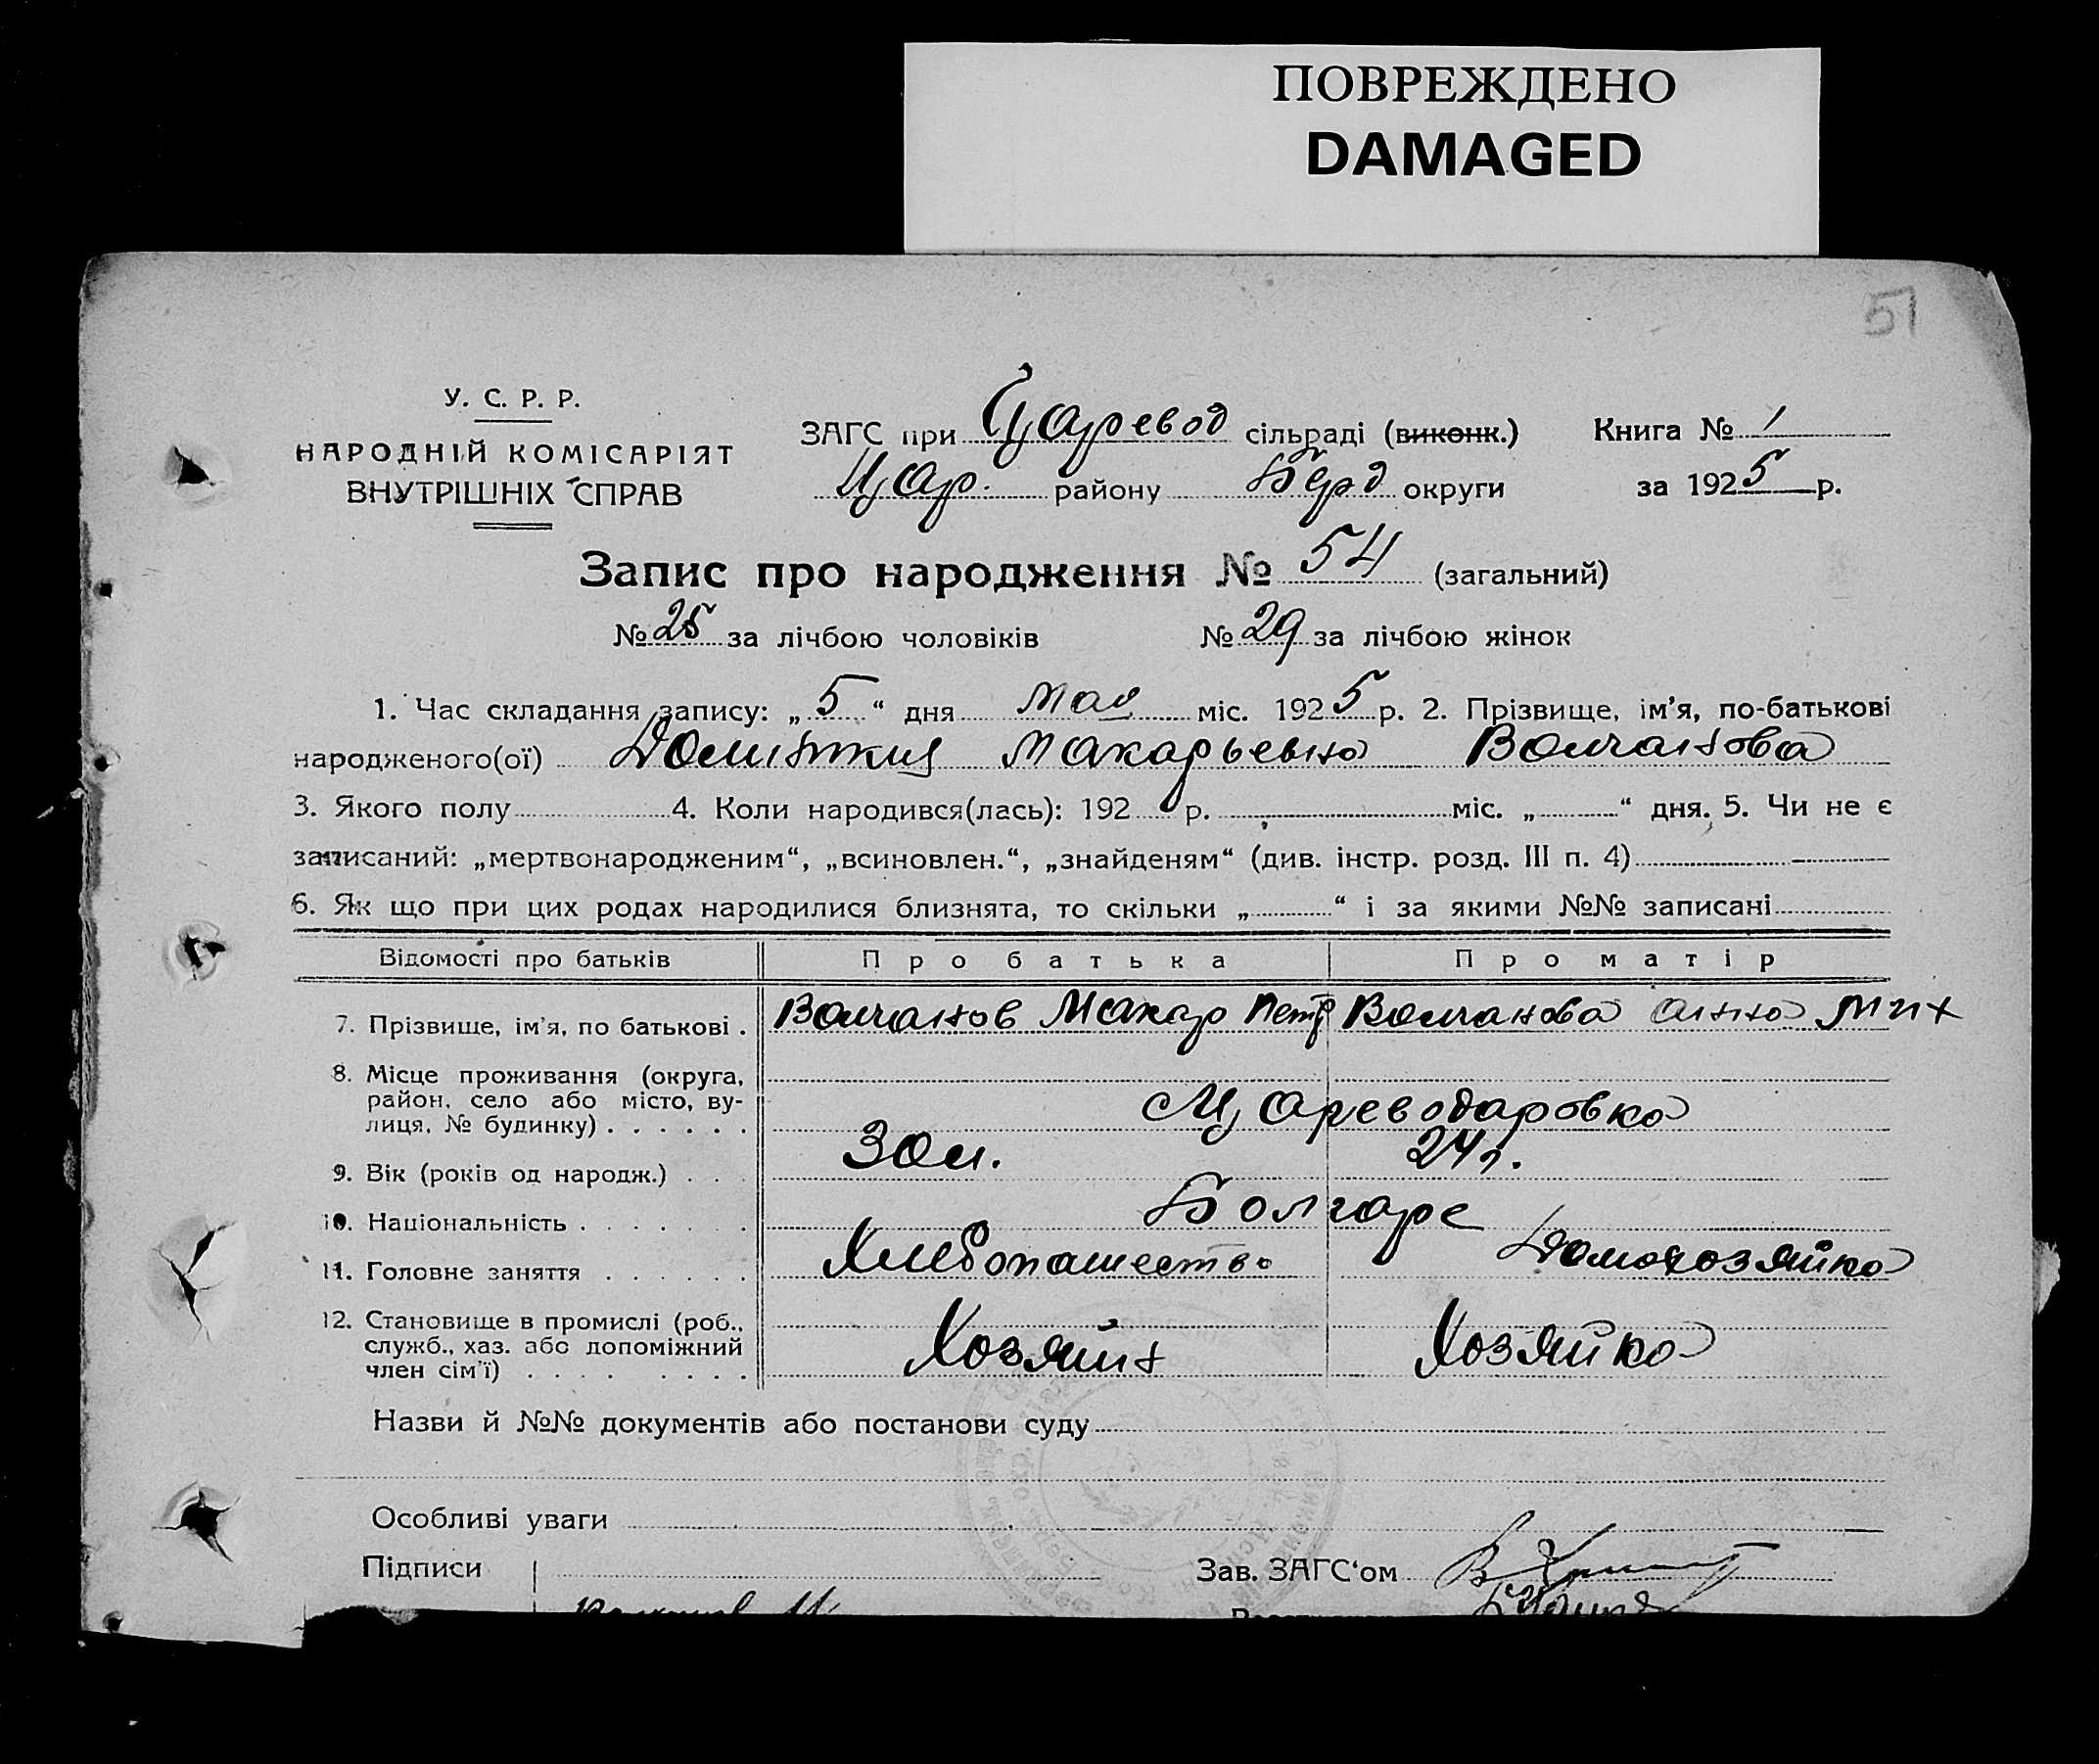 ПОВРЕЖДЕНО
DAMAGED
51
У. С. Р. Р.
НАРОДНІЙ КОМІСАРІЯТ
ВНУТРІШНІХ СПРАВ
ЗАГС при Царевод сільраді (виконк.) Книга № 1
Цар. району Берд округи за 1925 р.
Запис про народження № 54 (загальний)
№ 25 за лічбою чоловіків № 29 за лічбою жінок
1. Час складання запису: „5“ дня мая міс. 1925 р. 2. Прізвище, ім'я, по-батькові
народженого(ої) Домникия Макарьевна Волчанова
3. Якого полу 4. Коли народився(лась): 192 р. міс. „ “ дня. 5. Чи не є
записаний: „мертвонародженим“, „всиновлен.“, „знайденям“ (див. інстр. розд. III п. 4)
6. Як що при цих родах народилися близнята, то скільки „ “ і за якими №№ записані
Відомості про батьків Про батька Про матір
7. Прізвище, ім'я, по батькові . Волчанов Макар Петр Волчанова Анна Мих
8. Місце проживання (округа,
район, село або місто, ву-
лиця, № будинку) . . . . . . Цареводаровка
9. Вік (років од народж.) . . . 30л. 24г.
10. Національність . . . . . . Болгаре
11. Головне заняття . . . . . . Хлебопашество Домохозяйка
12. Становище в промислі (роб.,
служб., хаз. або допоміжний
член сім'ї) . . . . . . . . Хозяин Хозяйка
Назви й №№ документів або постанови суду
Особливі уваги
Підписи Зав. ЗАГС'ом